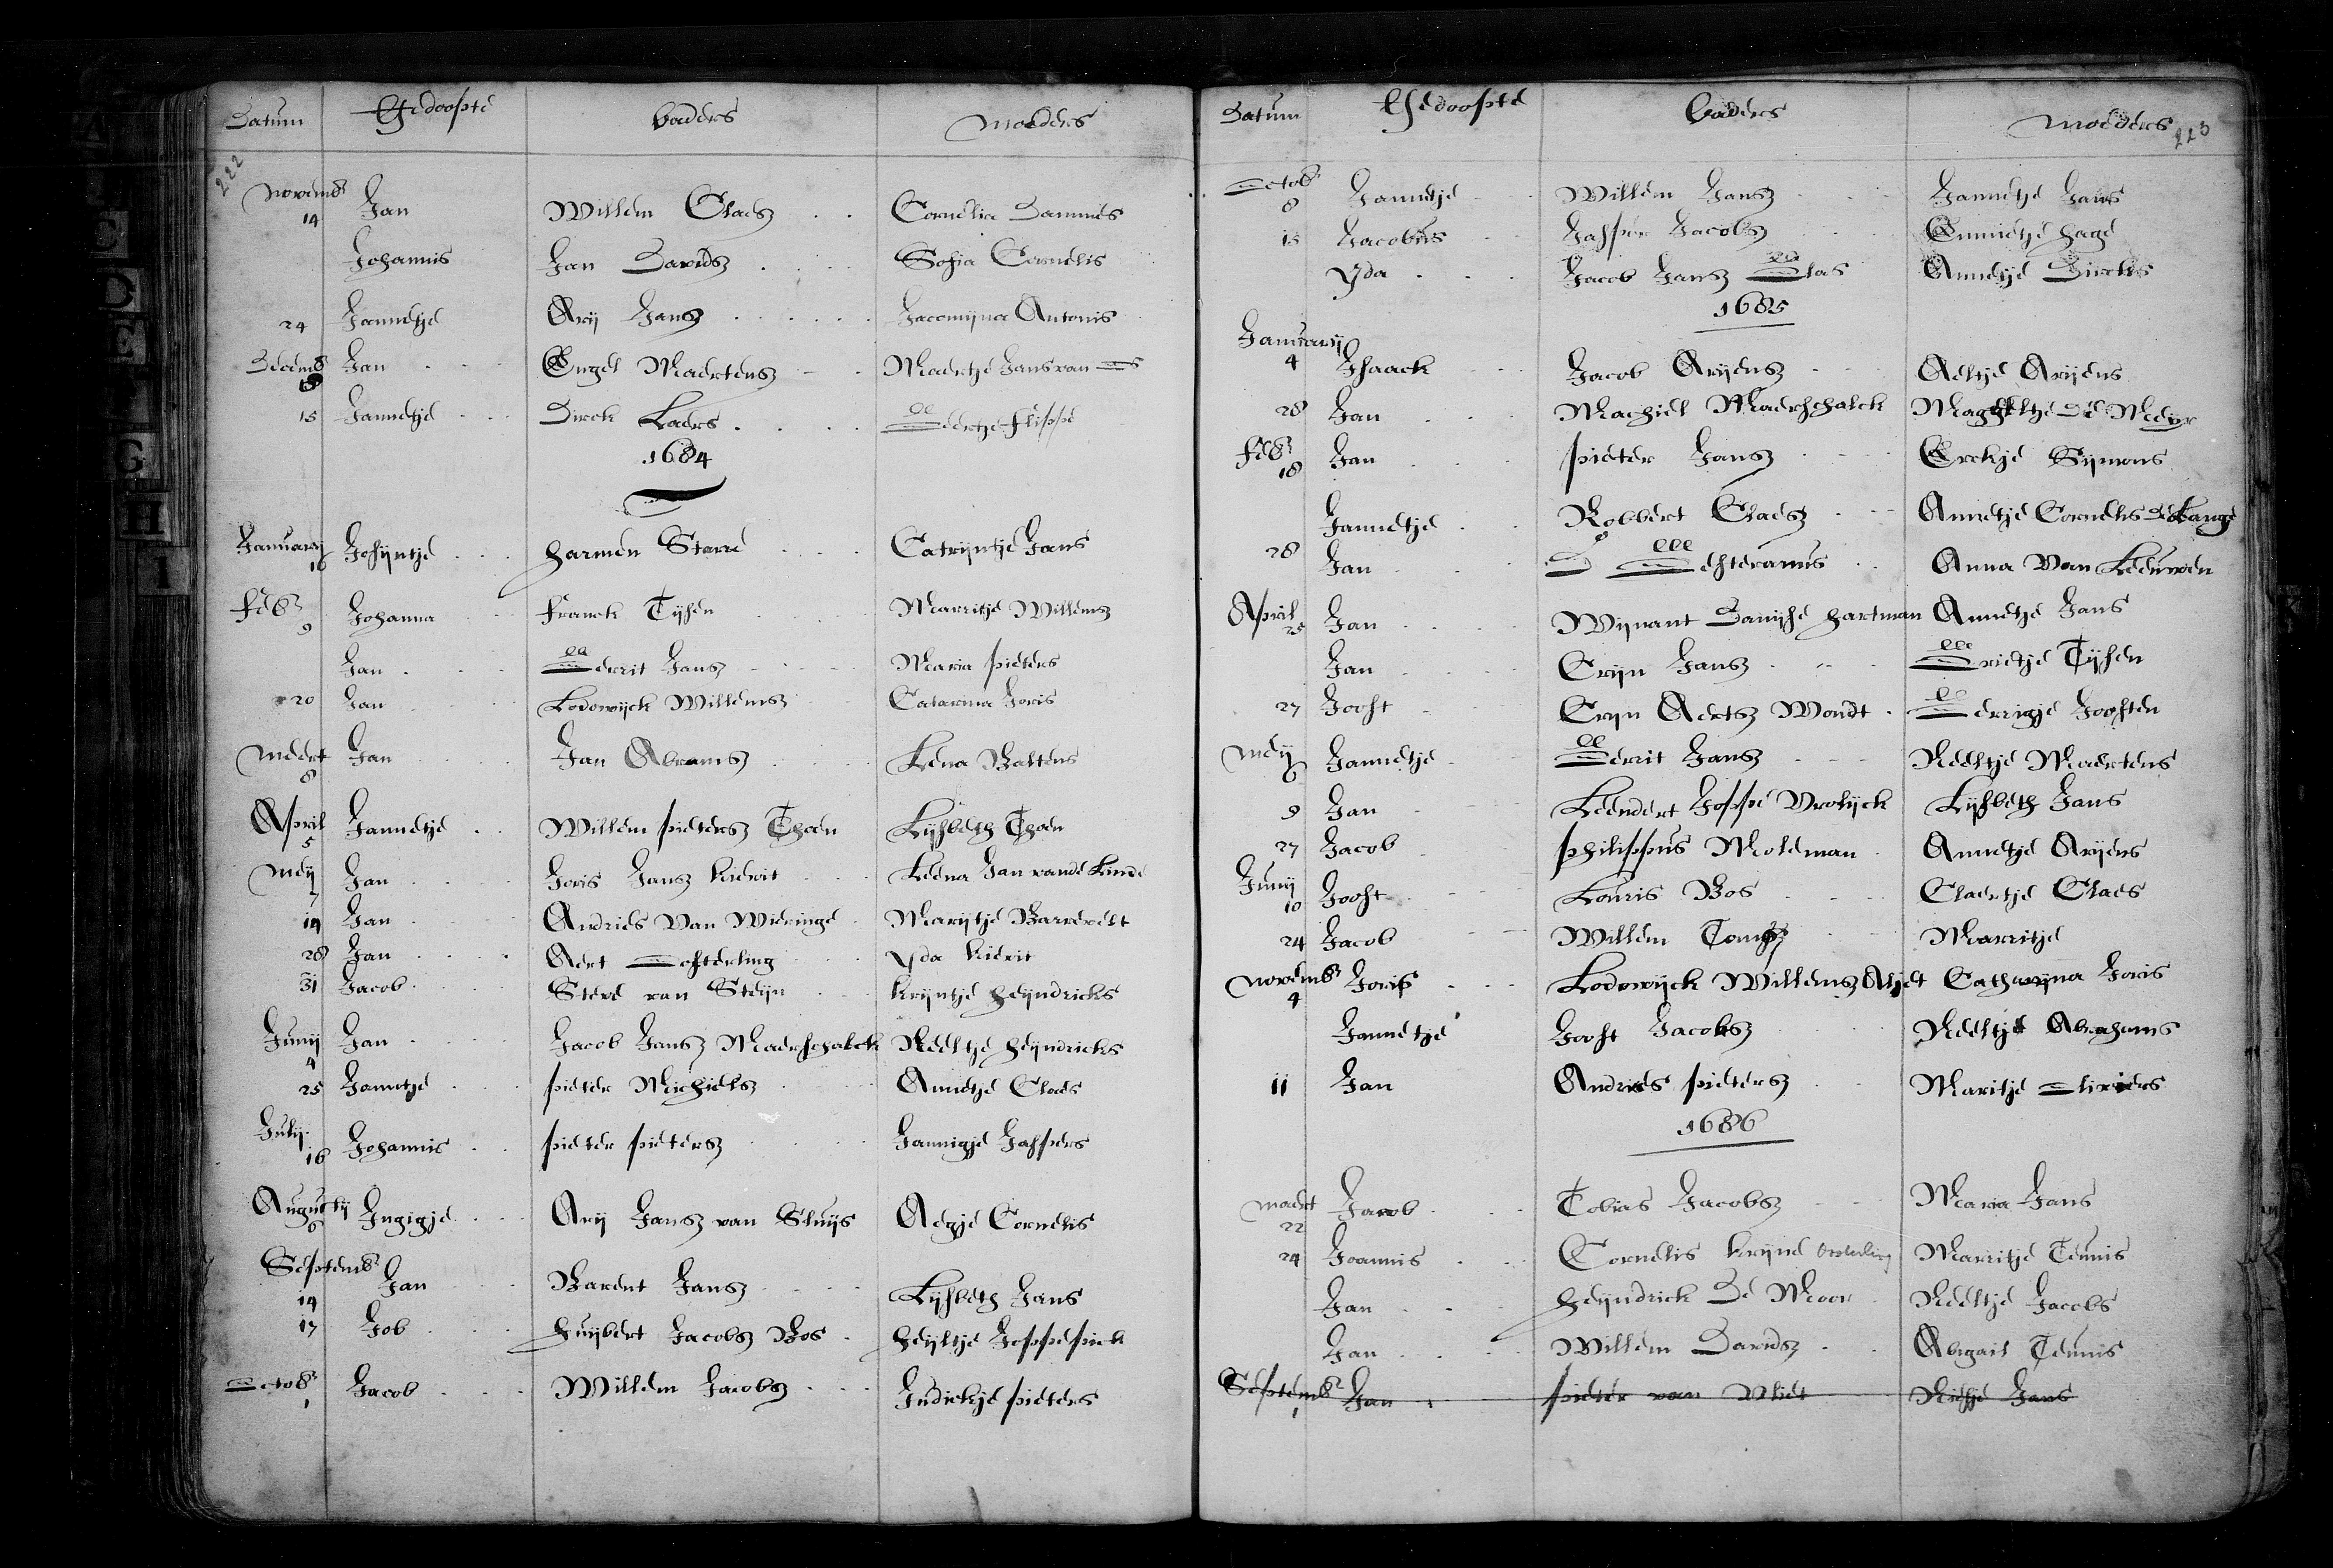 Datum Gedoopte Vaders Moeders
222
Novemb
14 Jan Willem Claesz Cornelia Dammis
Johannis Jan Davidsz Sofia Cornelis
24 Jannetje Arij Jansz Jacomijna Antonis
Decemb Jan Engel Maertensz Maertje Jans van Os
15 Jannetje Dirck Laers Geertje Flippe
1684
Januarij
16 Josijntje Harmen Starre Catrijntje Jans
Feb
9 Johanna Franck Tijsen Marritje Willemsz
Jan Gerrit Jansz Maria Pieters
20 Jan Lodewijck Willemsz Catarina Joris
Meert
8 Jan Jan Abramsz Lena Baltens
April
5 Jannetje Willem Pietersz Thoen Lijsbeth Thoen
Meij
7 Jan Joris Jansz Kievit Leena Jan vande Linde
14 Jan Andries Van Wieringe Marijtje Barrevelt
28 Jan Aert Oosterling Yda Kievit
31 Jacob Steve van Steijn Krijntje Heijndricks
Junij
4 Jan Jacob Jansz Maerschalck Neeltje Heijndricks
25 Jannetje Pieter Michielsz Annetje Claes
Julij
16 Johannis Pieter Pietersz Jannigje Jaspers
Augustij
6 Ingigje Arij Jansz van Sluijs Aegje Cornelis
Septemb
14 Jan Barent Jansz Lijsbeth Jans
17 Job Huijbert Jacobsz Bos Heijltje Joppe Pick
Octob
1 Jacob Willem Jacobsz Indickje Pieters
Datum Gedoopte Vaders Moeders
223
Octob
8 Jannetje Willem Jansz Jannetje Jans
15 Jacobus Jasper Jacobsz Emmetje Hage
Yda Jacob Jansz Glas Annetje Dircks
1685
Januarij
4 Isaack Jacob Arijensz Aeltje Arijens
28 Jan Machiel Maerschalck Maggheltje De Meyer
Feb
18 Jan Pieter Jansz Eeckje Sijmons
Jannetje Robbert Claesz Annetje Cornelis de Lange
28 Jan D Gesteranus Anna Van Leeuwen
April
25 Jan Wijnant Danijse Hartman Annetje Jans
Jan Crijn Jansz Grietje Tijsen
27 Joost Crijn Aertsz Mondt Gerrigje Joosten
Meij
6 Jannetje Gerrit Jansz Neeltje Maertens
9 Jan Leendert Joppe Vrolijck Lijsbeth Jans
27 Jacob Philippus Moleman Annetje Arijens
Junij
10 Joost Louris Bos Claertje Claes
24 Jacob Willem Marritje
Novemb
4 Joris Lodewijck Willemsz Catharijna Joris
Jannetje Joost Jacobsz Neeltje Abrahams
11 Jan Andries Pietersz Maritje Oliviers
1686
Maert
22 Jacob Tobias Jacobsz Maria Jans
24 Joannis Cornelis Krijne Oosterling Marritje Teunis
Jan Heijndrick De Moor Neeltje Jacobs
Jan Willem Davidsz Abigail Teunis
Septemb
1 Jan Pieter van Vliet Jans